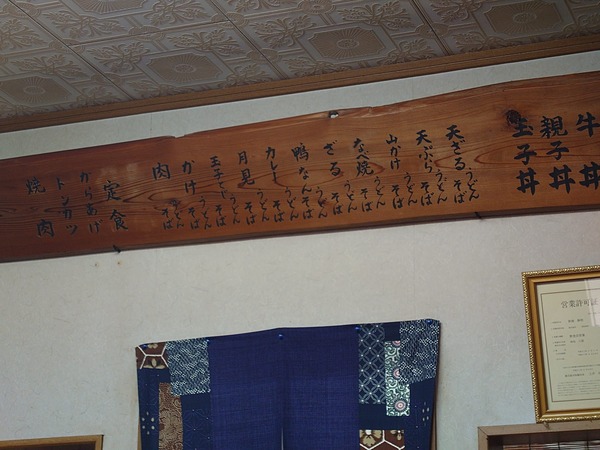 牛丼
親子丼
玉子丼
天ざる うどん そば
天ぷら うどん そば
山かけ うどん そば
なべ焼 うどん そば
ざる うどん そば
鴨なん うどん そば
カレー うどん そば
月見 うどん そば
玉子とじ うどん そば
かけ うどん そば
肉 うどん そば
定食
からあげ
トンカツ
焼肉
営業許可証